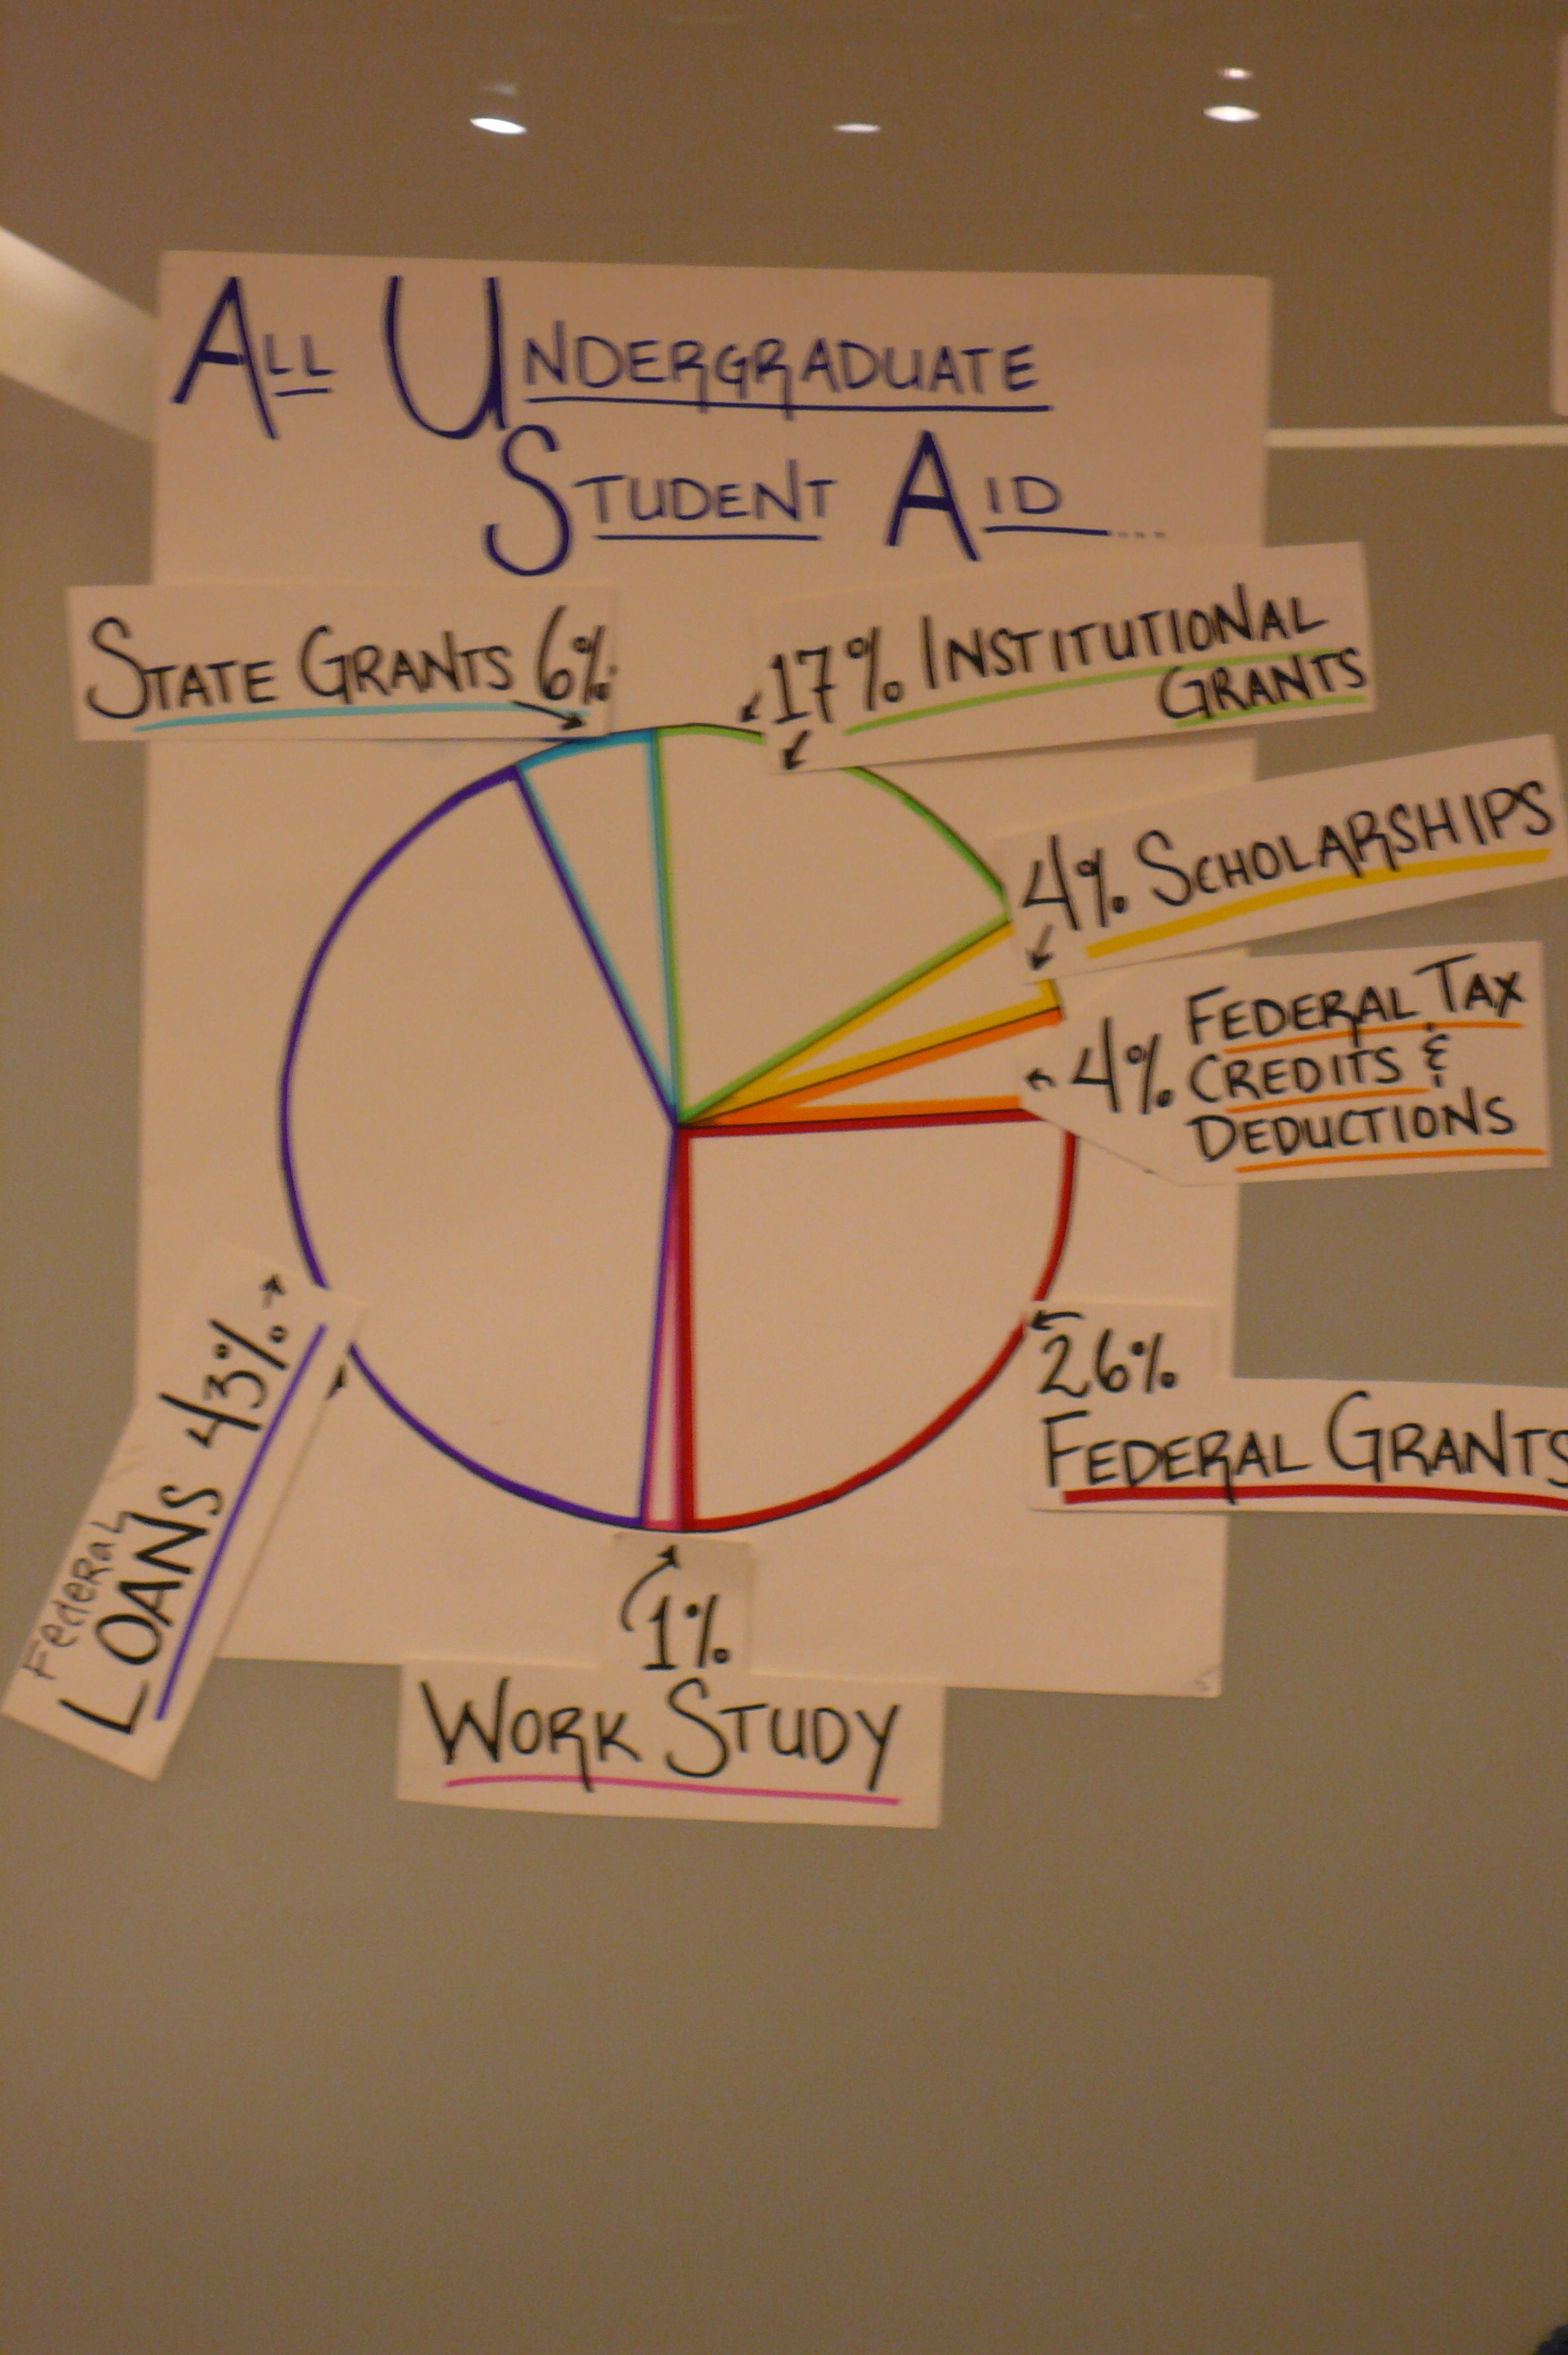 ALL UNDERGRADUATE
STUDENT AID....
STATE GRANTS 6%
17% INSTITUTIONAL
GRANTS
4% SCHOLARSHIPS
4% FEDERAL TAX
CREDITS &
DEDUCTIONS
26%
FEDERAL GRANTS
Federal
LOANS 43%
1%
WORK STUDY